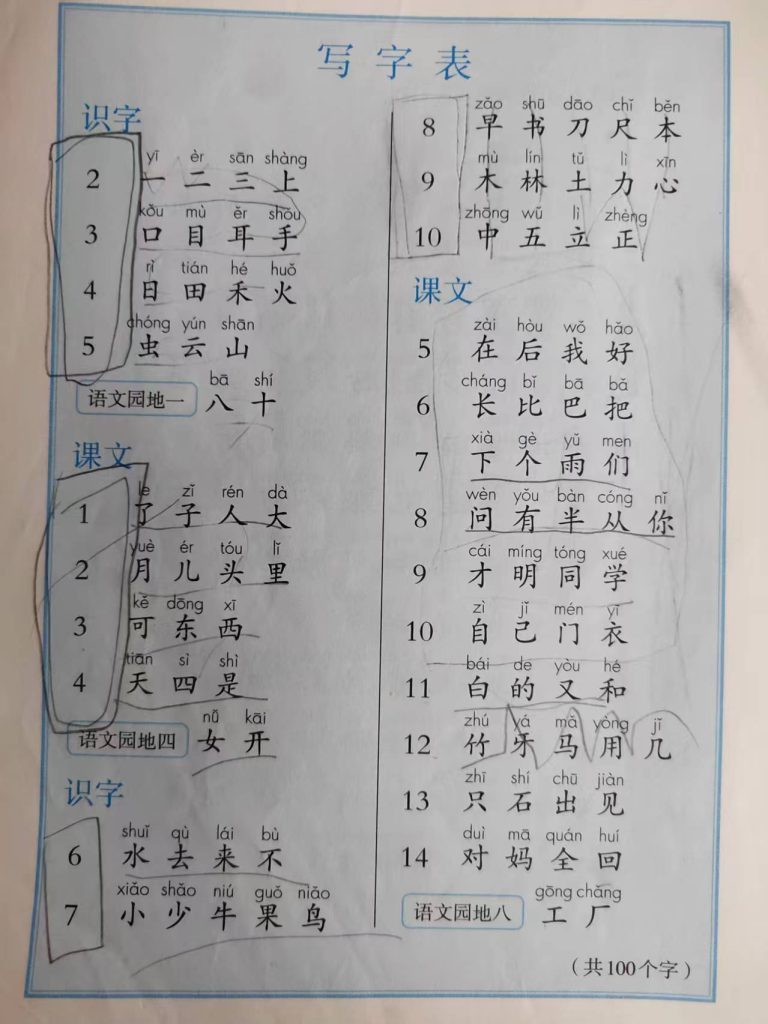 写字表
识字
yī èr sān shàng
2 一 二 三 上
kǒu mù ěr shǒu
3 口 目 耳 手
rì tián hé huǒ
4 日 田 禾 火
chóng yún shān
5 虫 云 山
bā shí
语文园地一 八 十
课文
le zǐ rén dà
1 了 子 人 大
yuè ér tóu lǐ
2 月 儿 头 里
kě dōng xī
3 可 东 西
tiān sì shì
4 天 四 是
nǚ kāi
语文园地四 女 开
识字
shuǐ qù lái bù
6 水 去 来 不
xiǎo shǎo niú guǒ niǎo
7 小 少 牛 果 鸟
zǎo shū dāo chǐ běn
8 早 书 刀 尺 本
mù lín tǔ lì xīn
9 木 林 土 力 心
zhōng wǔ lì zhèng
10 中 五 立 正
课文
zài hòu wǒ hǎo
5 在 后 我 好
cháng bǐ bā bǎ
6 长 比 巴 把
xià gè yǔ men
7 下 个 雨 们
wèn yǒu bàn cóng nǐ
8 问 有 半 从 你
cái míng tóng xué
9 才 明 同 学
zì jǐ mén yī
10 自 己 门 衣
bái de yòu hé
11 白 的 又 和
zhú yá mǎ yòng jǐ
12 竹 牙 马 用 几
zhī shí chū jiàn
13 只 石 出 见
duì mā quán huí
14 对 妈 全 回
gōng chǎng
语文园地八 工 厂
（共100个字）